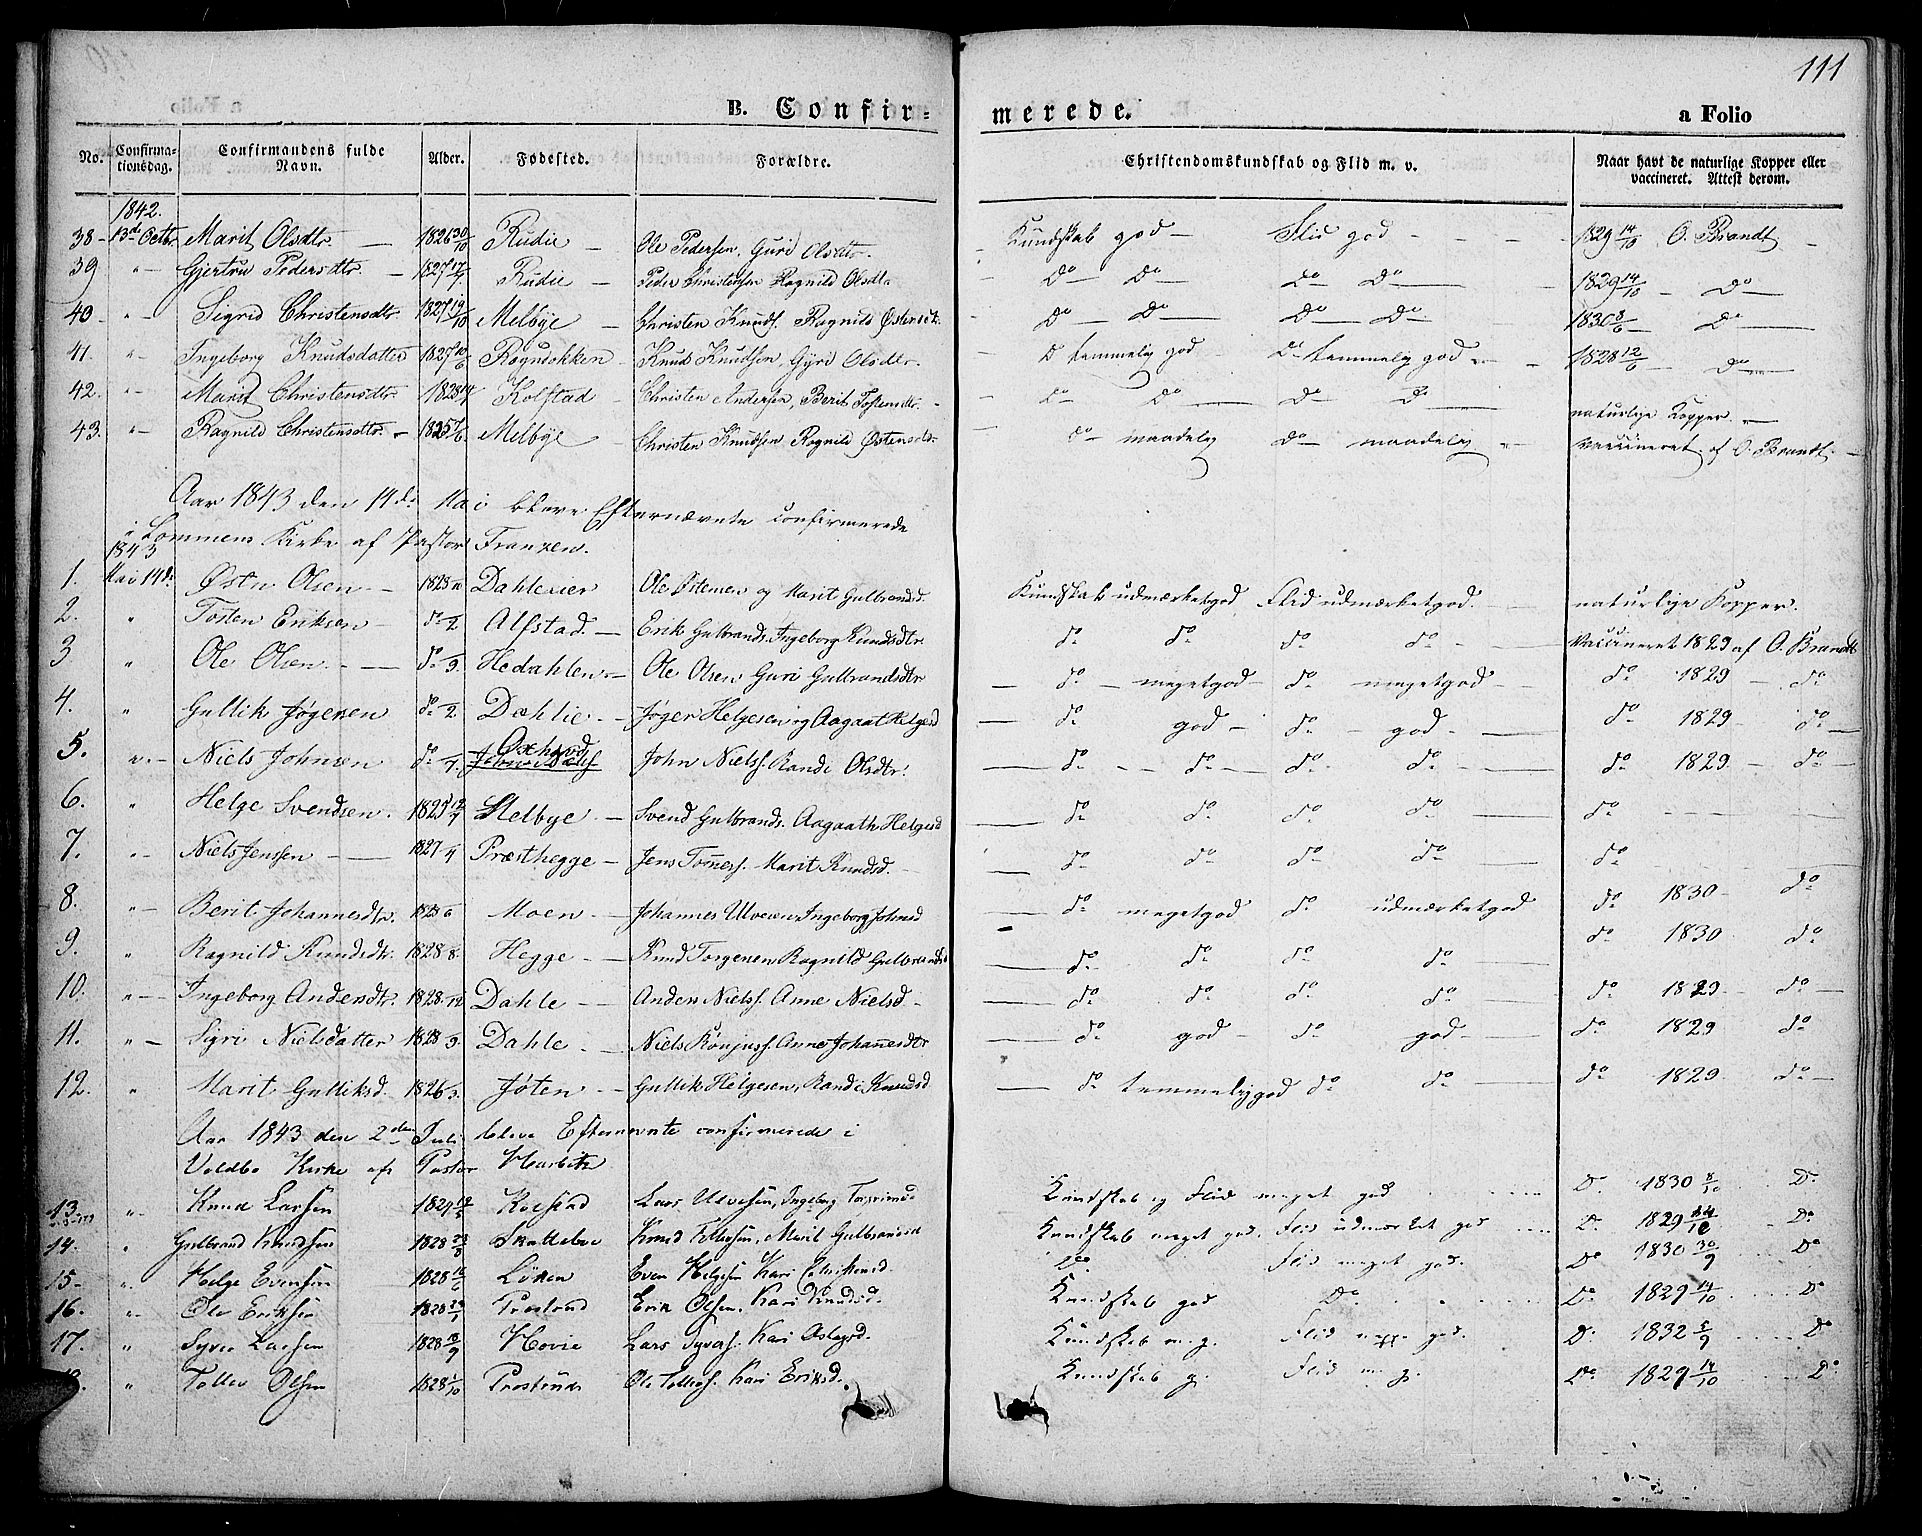 111
B. Confirmerede. a Folio
No. Confirmationsdag. Confirmandens fulde Navn. Alder. Fødested. Forældre. Christendomskundskab og Flid m. v. Naar havt de naturlige Kopper eller vaccineret. Attest derom.
1842.
38 - 13de Octbr. Marit Olsdtr. — 1826 30/10 Rudie — Ole Pedersen, Guri Olsdtr. Kundskab god — Flid god - 1829 14/10 O. Brandt —
39 " - Gjertru Pedersdtr. — 1827 Rudie — Peder Christensen Ragnild Olsdtr D° — D° — D° — D° — 1829 14/10 — D° —
40 - " - Sigrid Christensdtr. 1827 19/10 Melbye — Christen Knuds. Ragnild Østensdtr. D° — D° — D° — D° — 1830 8/6 D° —
41. " - Ingeborg Knudsdatter 1827 Rogndokken — Knud Knudsen, Gyri Olsdtr. D° temmelig god — D° temmelig god — 1828 12/6 D° —
42. " - Marit Christensdtr. 1828 Kolstad — Christen Andersen, Berit Tostensdtr. - D° — D° — D° — D° — naturlige Kopper. —
43. " - Ragnild Christensdtr. — 1825 Melbye — Christen Knudsen Ragnild Østensdtr. D° — maadelig D° — maadelig — vaccineret af O. Brandt. —
Aar 1843 den 14de Mai bleve Efternævnte confirmerede
i Lommens Kirke af Pastor Franzen.
1843
1. Mai 14de Østn Olsen — 1828 Dahleeier Ole Østensen og Marit Gulbrandsd. Kundskab udmærketgod Flid udmærketgod. — naturlige Kopper.
2. " Tosten Eriksen — d° 2 Alfstad. — Erik Gulbrands. Ingeborg Knudsdtr d° d° d° d° - Vaccineret 1829 af O. Brandt
3 " Ole Olsen — d° 9. Hedahlen — Ole Olsen Guri Gulbrandsdtr — d° — megetgod — d° megetgod — d° 1829 — d° —
4. " Gullik Jøgersen d° 2 Dahlie — Jøger Helgesen og Aagaat Helgesd — d° god — d° — god — d° 1829 — d° —
5. " - Niels Johnsen d° 7. Oxhovd John Niels. Randi Olsdtr. — d° — d° — d° — d° — d° 1829 — d° —
6. " Helge Svendsen. 1825 12/7 Melbye. — Svend Gulbrands. Aagaath Helgesd — d° d° d° d° — d° - - - -
7. " - Niels Jenssen — 1827 Præsthegge — Jens Tomess. Marit Knudsd. — d° d° d° d° — d° -
8. " - Berit Johannesdtr. 1828 6 Moen — Johannes Ulvesen Ingeborg Johnsd — d° megetgod d° udmærketgod d° 1830 - d°
9. " Ragnild Knudsdtr. 1828 8. Hegge — Knud Torgersen Ragnild Gulbrandsd — d° d° d° d° — d° 1830 d°
10. " - Ingeborg Andersdtr. 1828 12 Dahle — Anders Niels. Anne Nielsd. — d° d° d° d° — d° 1829 — d° —
11. " - Sigri Nielsdatter 1828 9. Dahle — Niels Rønjuss. Anne Johannesdtr — d° god — d° god — d° 1829 d°
12. " Marit Gulliksd. 1826 3. Jøten — Gullik Helgesen, Randi Knudsd — d° temmeliggod d° d° — d° 1829 d° —
Aar 1843 den 2den Juli bleve Efternævnte confirmerede i
Voldbo Kirke af Pastor Harbitz
13. " - Knud Larsen 1829 Kolstad Lars Ulvesen, Ingeborg Kundskab og Flid meget god. D° 1830 8/10 D°
14. " Gulbrand Knudsen 1828 Skattebo Knud Tollefsen, Marit Gulbrandsd Kundskab meget god. Flid udmærket god D° 1829 14/10 D°
15 - " Helge Evensen 1828 Løken Even Helgesen Kari Christensd. D° Flid meget god. D° 1830 30/9 D°
16. " Ole Eriksen 1828 Prestrud Erik Olsen. Kari Knudsd. Kundskab god D° D° 1829 14/10 D°
17. " Syver Larsen 1828 Hovie Lars Syvers. Kari Aslagsd. Kundskab m. g. Flid god. D° 1832 8/9 D°
" Tollev Olsen 1828 Prestrud Ole Tollefs. Kari Eriksd. Kundskab g. Flid m. g. D° 1829 14/10 D°